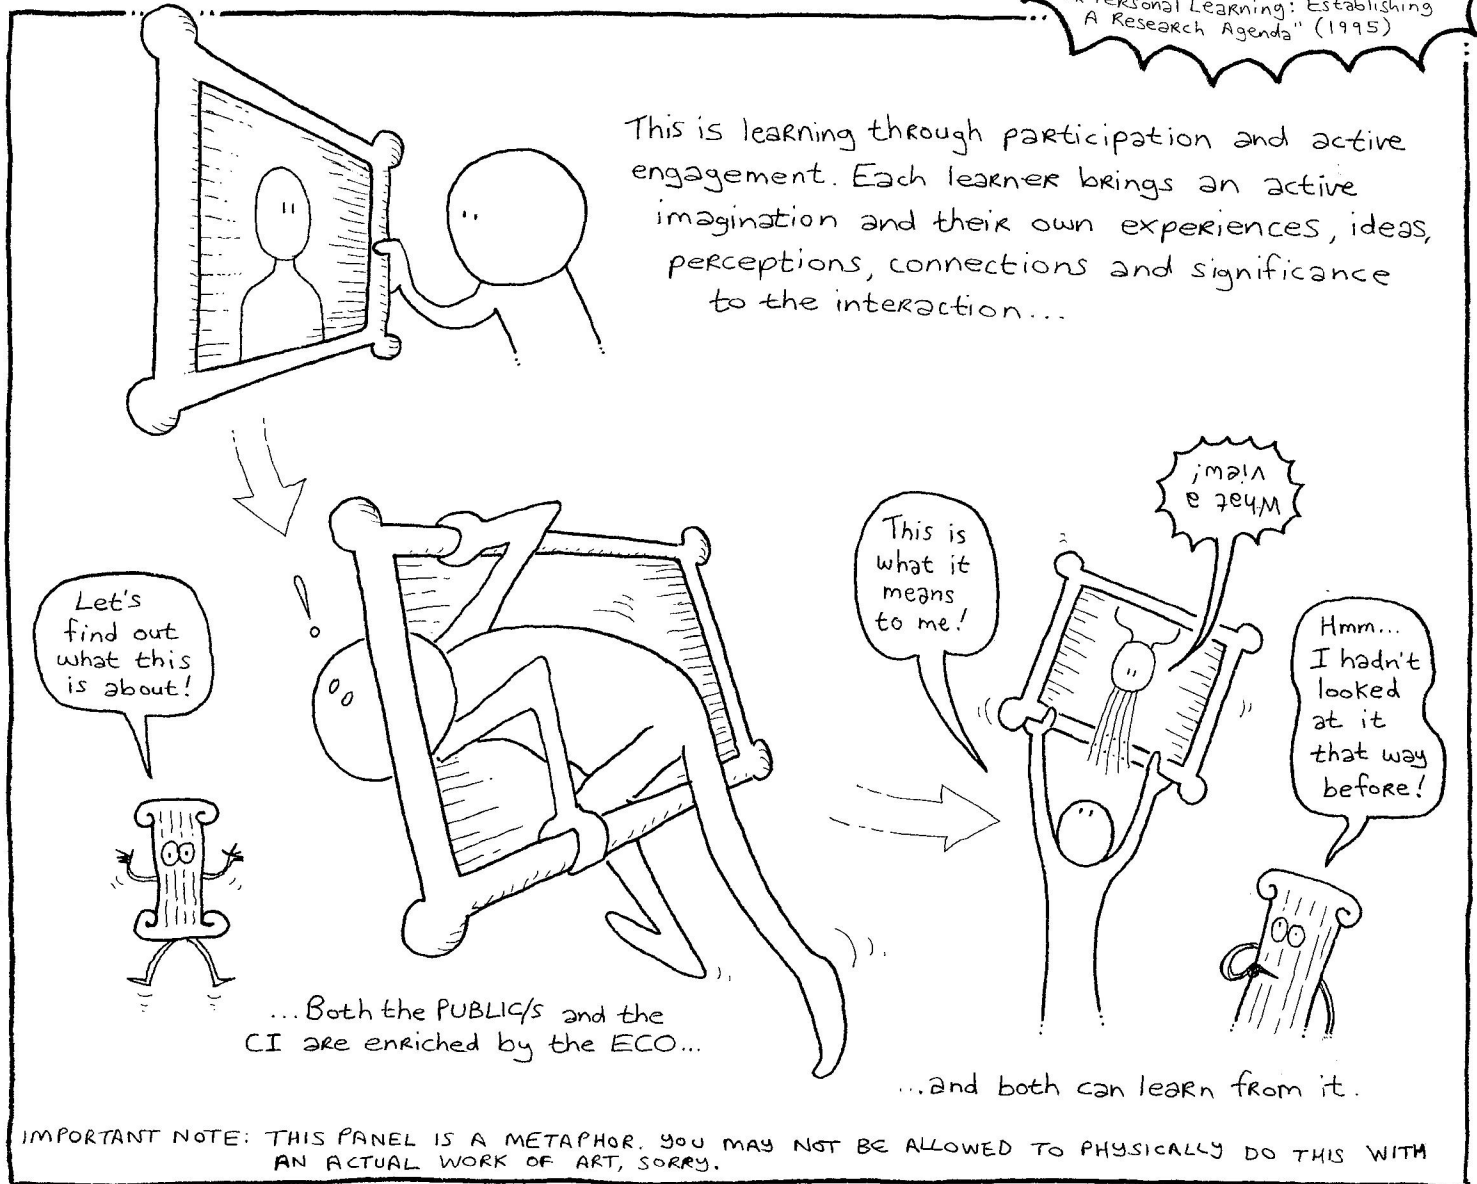 Personal Learning: Establishing
A Research Agenda" (1995)
This is learning through participation and active
engagement. Each learner brings an active
imagination and their own experiences, ideas,
perceptions, connections and significance
to the interaction...
Let's
find out
what this
is about!
!
...Both the PUBLIC/S and the
CI are enriched by the ECO...
This is
what it
means
to me!
What a
view!
Hmm...
I hadn't
looked
at it
that way
before!
...and both can learn from it.
IMPORTANT NOTE: THIS PANEL IS A METAPHOR. YOU MAY NOT BE ALLOWED TO PHYSICALLY DO THIS WITH
AN ACTUAL WORK OF ART, SORRY.